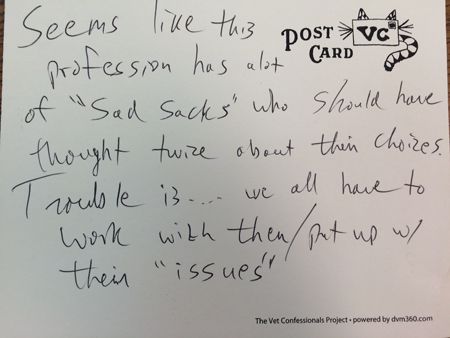 Seems like this
POST CARD
VC
profession has alot
of "Sad Sacks" who should have
thought twice about their choizes.
Trouble is.... we all have to
work with then/put up w/
their "issues"
The Vet Confessionals Project • powered by dvm360.com